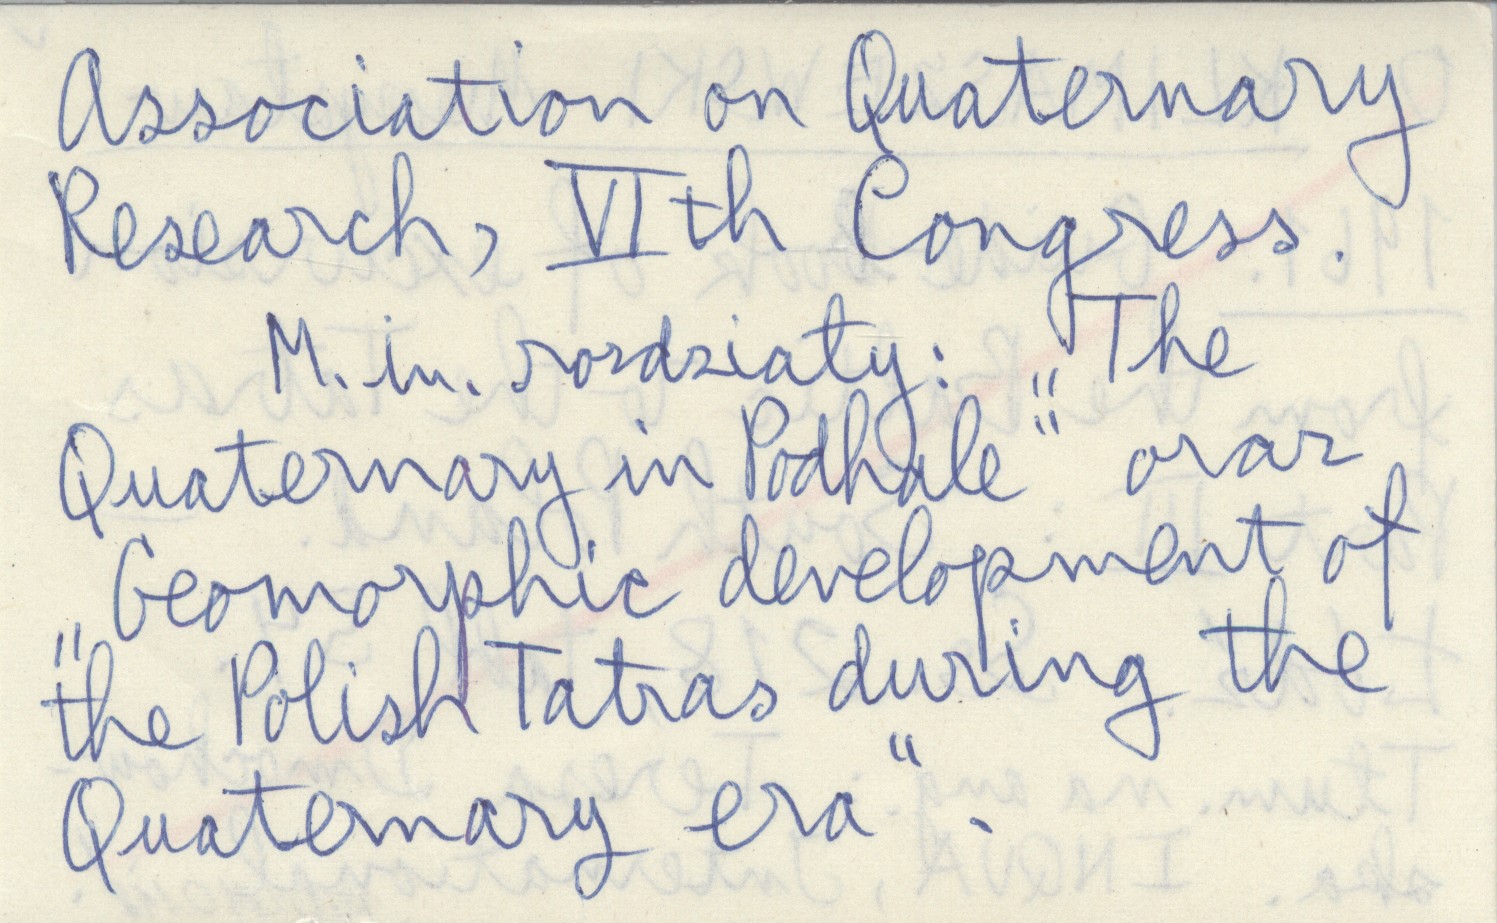 Association on Quaternary
Research, VIth Congress.
M. in. rozdziały: „The
Quaternary in Podhale" oraz
„Geomorphic development of
the Polish Tatras during the
Quaternary era".